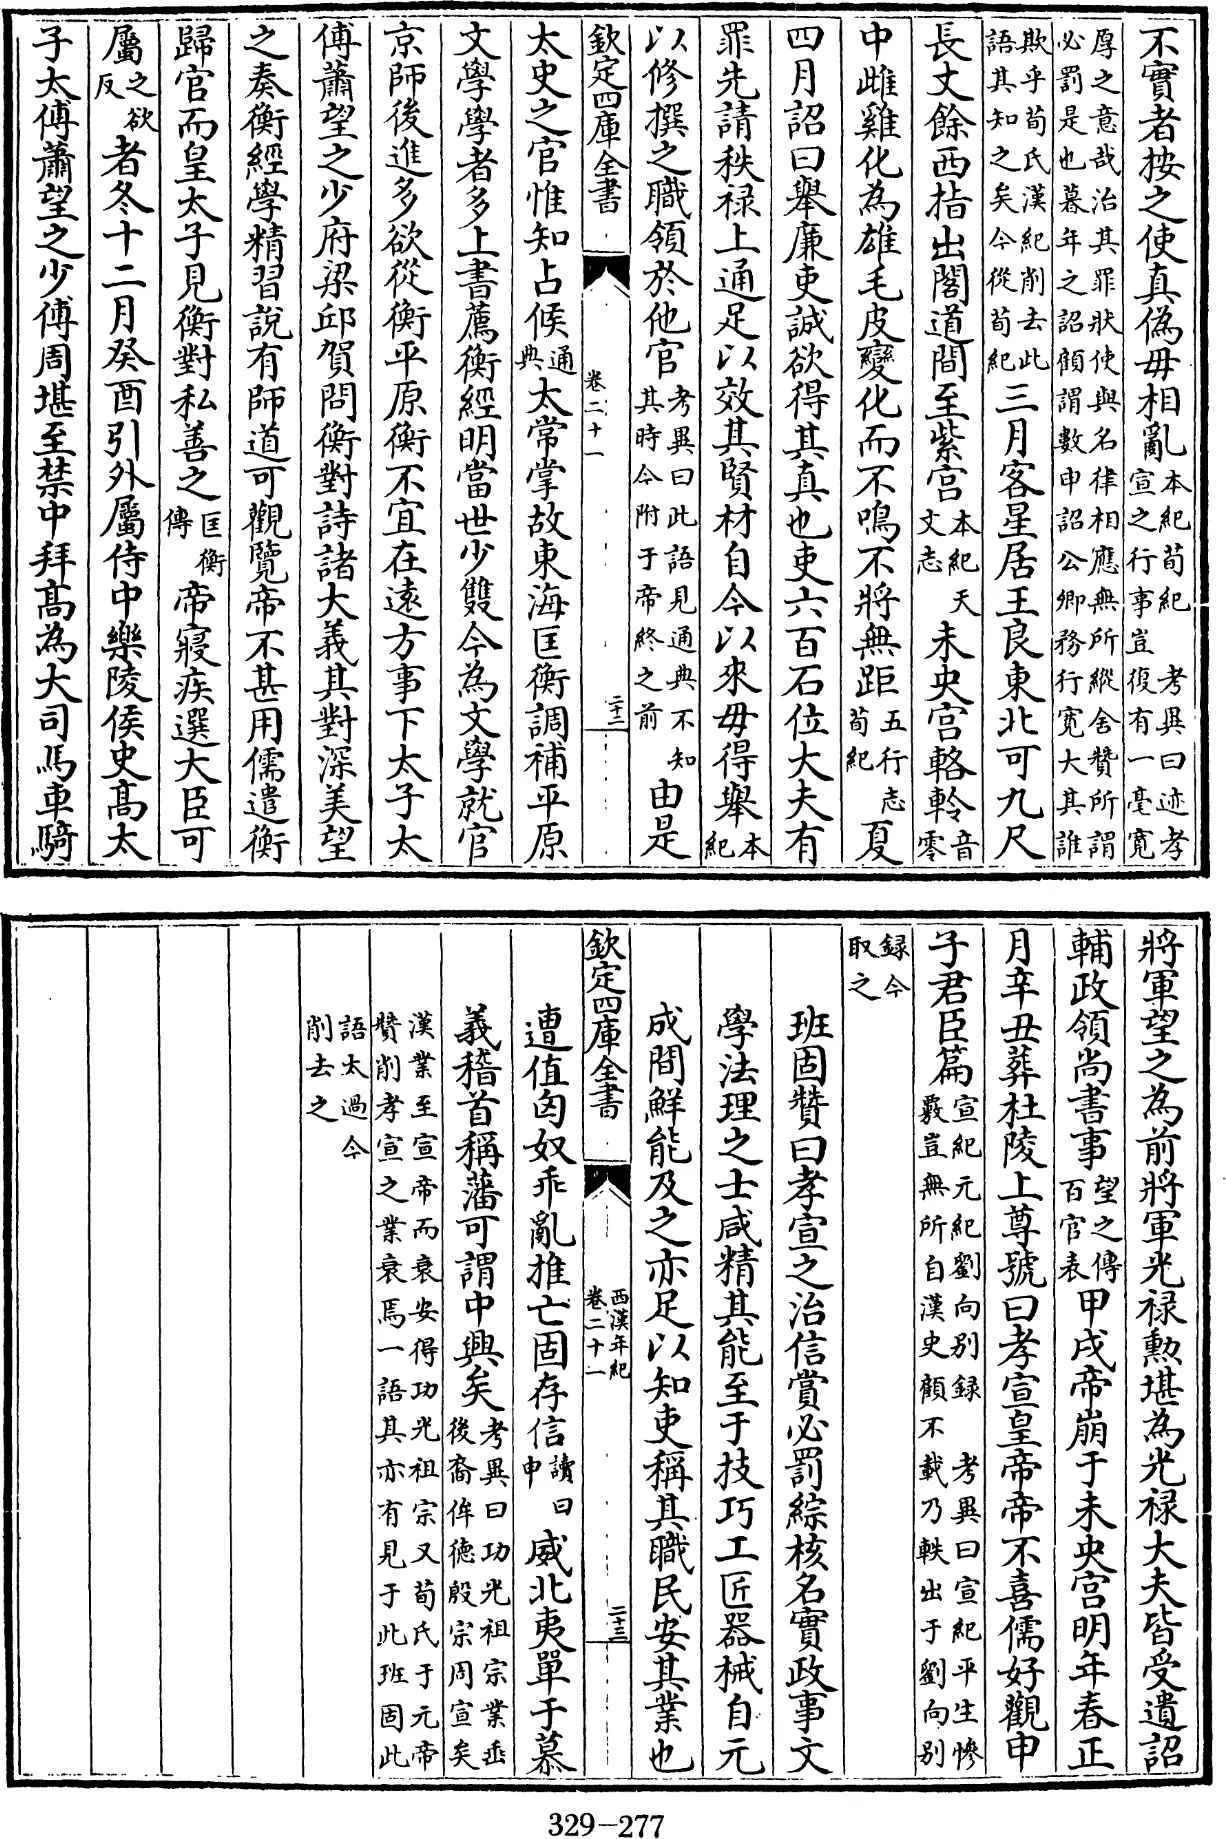 不實者按之使真偽毋相亂本紀荀紀　考異曰迹孝宣之行事豈復有一毫寬
厚之意哉治其罪狀使與名律相應無所縱舍贊所謂必罰是也暮年之詔顧謂數申詔公卿務行寬大其誰
欺乎荀氏漢紀削去此語其知之矣今從荀紀三月客星居王良東北可九尺
長丈餘西指出閣道間至紫宮本紀天文志未央宮輅軨音零
中雌雞化為雄毛皮變化而不鳴不將無距五行志荀紀夏
四月詔曰舉廉吏誠欲得其真也吏六百石位大夫有
罪先請秩祿上通足以效其賢材自今以來毋得舉本紀
以修撰之職領於他官考異曰此語見通典不知其時今附于帝終之前由是
欽定四庫全書　卷二十一　二十二
太史之官惟知占候通典太常掌故東海匡衡調補平原
文學學者多上書薦衡經明當世少雙今為文學就官
京師後進多欲從衡平原衡不宜在遠方事下太子太
傅蕭望之少府梁邱賀問衡對詩諸大義其對深美望
之奏衡經學精習說有師道可觀覽帝不甚用儒遣衡
歸官而皇太子見衡對私善之匡衡傳帝寢疾選大臣可
屬之欲反者冬十二月癸酉引外屬侍中樂陵侯史高太
子太傅蕭望之少傅周堪至禁中拜高為大司馬車騎
將軍望之為前將軍光祿勲堪為光祿大夫皆受遺詔
輔政領尚書事望之傳百官表甲戌帝崩于未央宮明年春正
月辛丑葬杜陵上尊號曰孝宣皇帝帝不喜儒好觀申
子君臣篇宣紀元紀劉向別録　考異曰宣紀平生慘覈豈無所自漢史顧不載乃軼出于劉向別
録今取之
班固贊曰孝宣之治信賞必罰綜核名實政事文
學法理之士咸精其能至于技巧工匠器械自元
成間鮮能及之亦足以知吏稱其職民安其業也
欽定四庫全書　西漢年紀卷二十一　二十三
遭值匈奴乖亂推亡固存信讀曰申威北夷單于慕
義稽首稱藩可謂中興矣考異曰功光祖宗業垂後裔侔德殷宗周宣矣
漢業至宣帝而衰安得功光祖宗又荀氏于元帝贊削孝宣之業衰焉一語其亦有見于此班固此
語太過今削去之
329-277